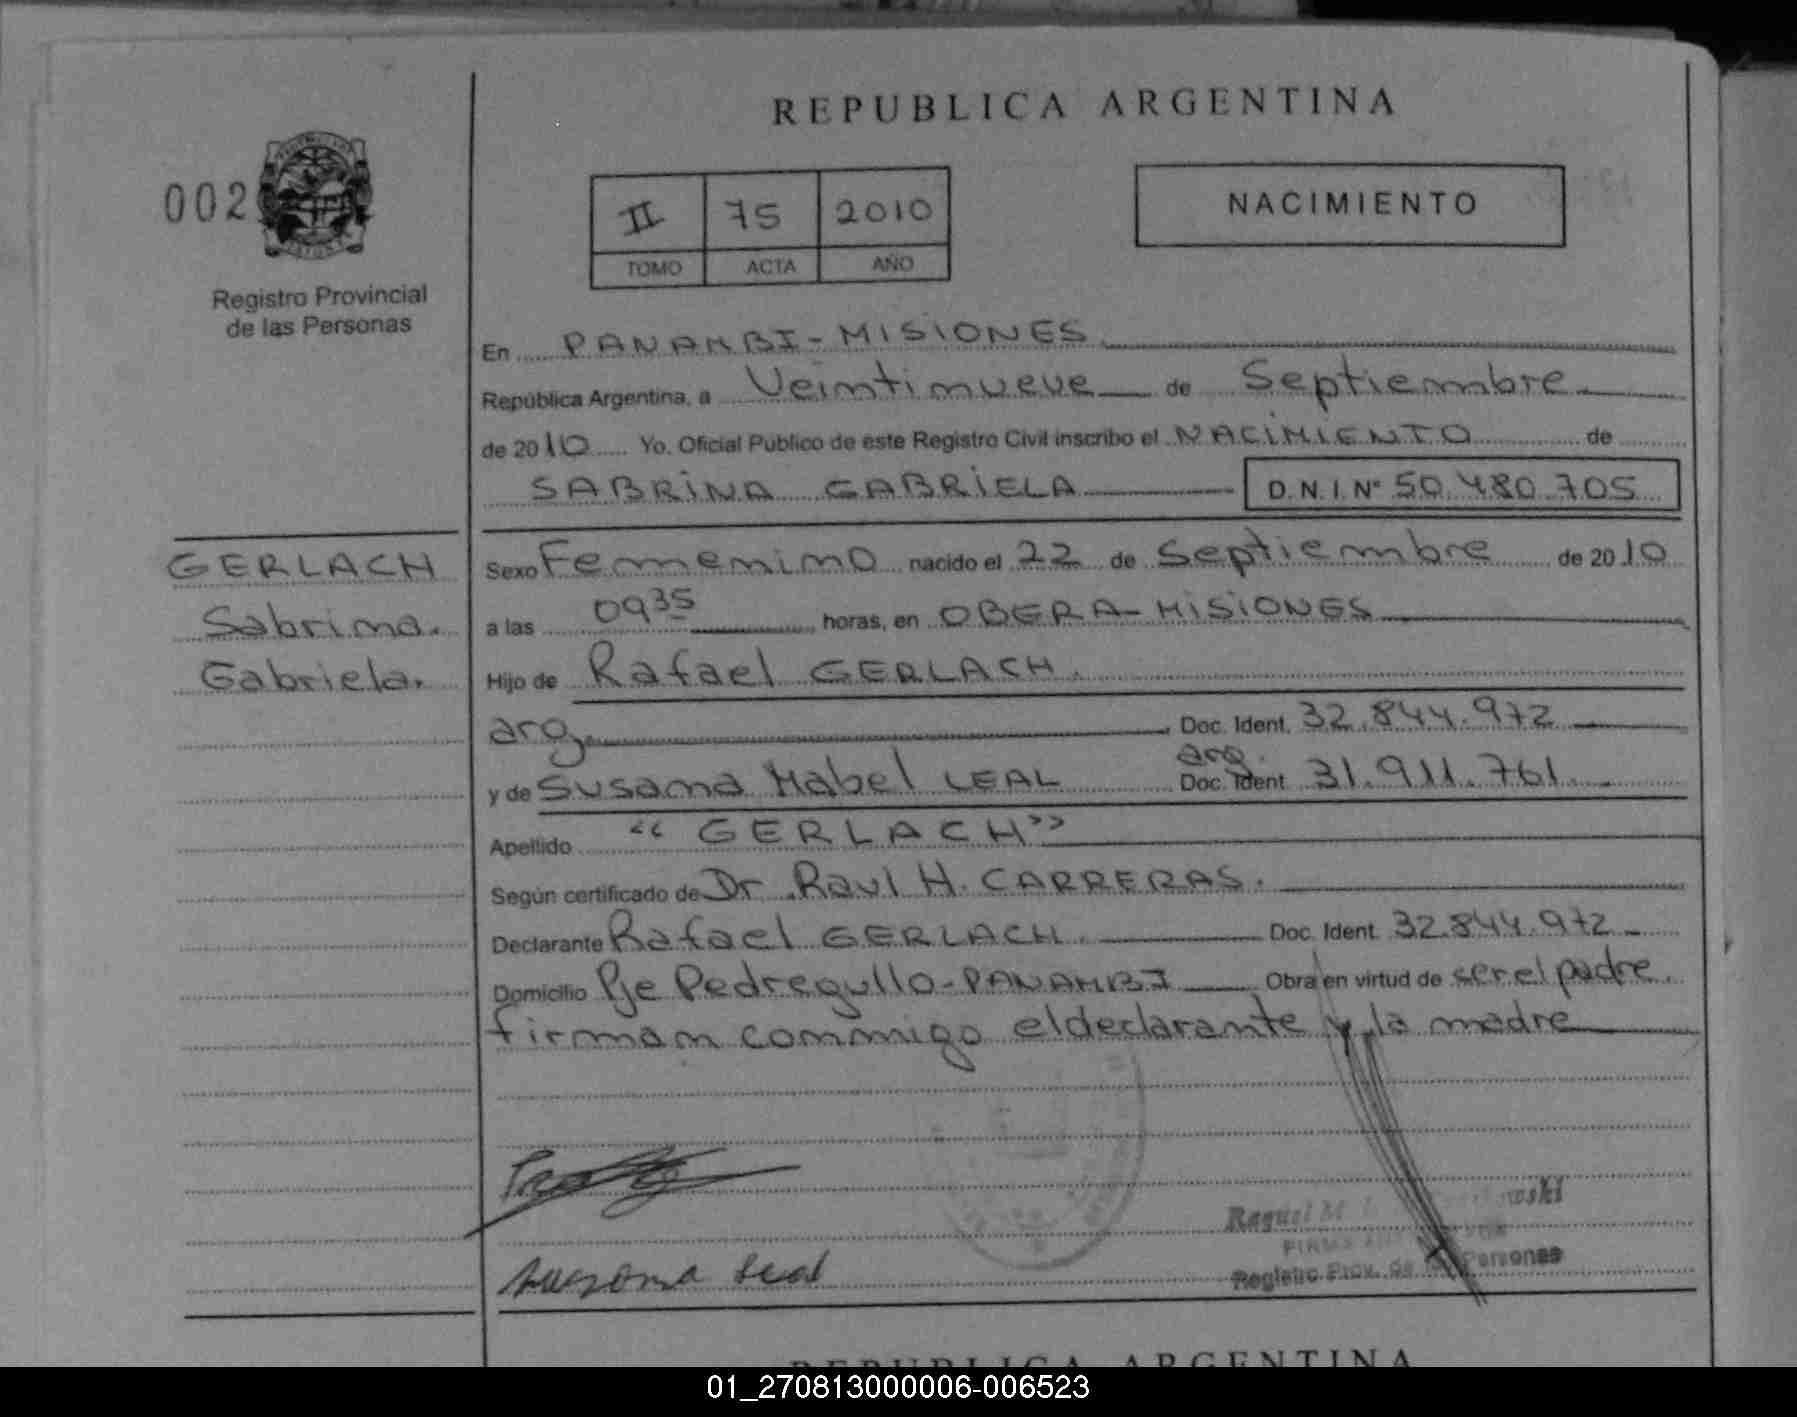 REPUBLICA ARGENTINA
002
II 75 2010
TOMO ACTA AÑO
NACIMIENTO
Registro Provincial
de las Personas
En PANAMBI-MISIONES
República Argentina, a Veintinueve de Septiembre
de 2010 Yo, Oficial Público de este Registro Civil inscribo el NACIMIENTO de
SABRINA GABRIELA D.N.I. Nº 50.480.705
GERLACH
Sabrina.
Gabriela.
Sexo Femenino nacido el 22 de Septiembre de 2010
a las 09 35 horas, en OBERA-MISIONES
Hijo de Rafael GERLACH.
arg. Doc. Ident. 32.844.972
arg.
y de Susana Mabel LEAL Doc. Ident. 31.911.761.
Apellido "GERLACH"
Según certificado de Dr. Raul H. CARRERAS.
Declarante Rafael GERLACH. Doc. Ident. 32.844.972
Domicilio Pje Pedregullo-PANAMBI Obra en virtud de ser el padre.
firman conmigo el declarante y la madre
Susana Leal
Raquel M.
Registro Prov. de las Personas
REPUBLICA ARGENTINA
01_270813000006-006523